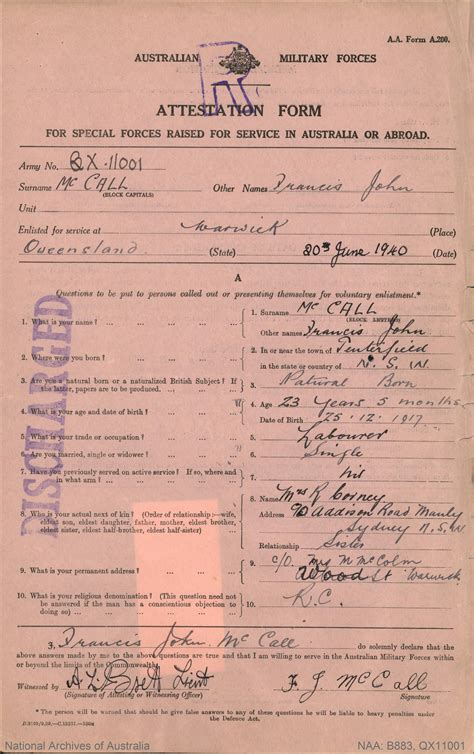 A.A. Form A.200.
AUSTRALIAN MILITARY FORCES
R
ATTESTATION FORM
FOR SPECIAL FORCES RAISED FOR SERVICE IN AUSTRALIA OR ABROAD.
Army No. QX.11001
Surname McCALL Other Names Francis John
(BLOCK CAPITALS)
Unit
Enlisted for service at Warwick (Place)
Queensland (State) 20th June 1940 (Date)
A
Questions to be put to persons called out or presenting themselves for voluntary enlistment.*
1. What is your name? ... ... ... 1. Surname McCALL
(BLOCK LETTERS)
Other names Francis John
2. Where were you born? ... ... ... 2. In or near the town of Tenterfield
in the state or country of N.S.W.
3. Are you a natural born or a naturalized British Subject? If the latter, papers are to be produced. ... ... 3. Natural Born
4. What is your age and date of birth? ... ... 4. Age 23 years 5 months
Date of Birth 25.12.1917
5. What is your trade or occupation? ... ... 5. Labourer
6. Are you married, single or widower? ... ... 6. Single
7. Have you previously served on active service? If so, where and in what arm? ... ... 7. Nil
8. Who is your actual next of kin? (Order of relationship:—wife, eldest son, eldest daughter, father, mother, eldest brother, eldest sister, eldest half-brother, eldest half-sister) 8. Name Mrs R Corney
Address 90 Addison Road Manly
Sydney N.S.W
Relationship Sister
9. What is your permanent address? ... ... 9. C/o. Mrs M McColm
Wood St Warwick
10. What is your religious denomination? (This question need not be answered if the man has a conscientious objection to doing so) ... ... 10. R.C.
DISCHARGED
I, Francis John McCall do solemnly declare that the
above answers made by me to the above questions are true and that I am willing to serve in the Australian Military Forces within
or beyond the limits of the Commonwealth.
Witnessed by Lieut F. J. McCall
(Signature of Attesting or Witnessing Officer) Signature
* The person will be warned that should he give false answers to any of these questions he will be liable to heavy penalties under
the Defence Act.
National Archives of Australia NAA: B883, QX11001